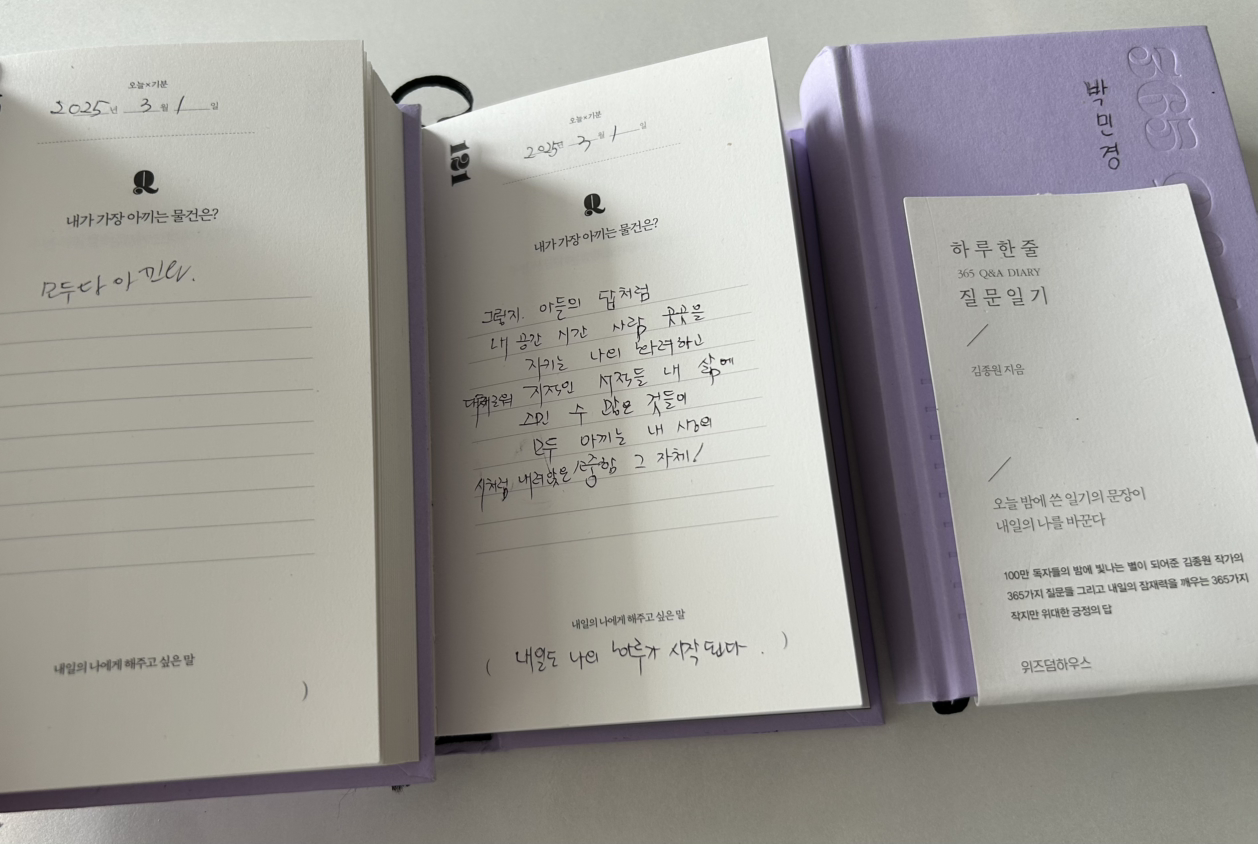 오늘×기분
2025년 3월 1일
Q
내가 가장 아끼는 물건은?
모두다 아낀다.
내일의 나에게 해주고 싶은 말
)
121
오늘×기분
2025년 3월 1일
Q
내가 가장 아끼는 물건은?
그렇지. 아들의 답처럼
내 공간 시간 사람 곳곳을
지키는 나의 반려하고
지적인 서적들 내 삶에
스민 수 많은 것들이
모두 아끼는 내 생의
시처럼 내려앉은 소중함 그 자체!
내일의 나에게 해주고 싶은 말
( 내일도 나의 하루가 시작 된다. )
365
박민경
하루 한 줄
365 Q&A DIARY
질문 일기
김종원 지음
오늘 밤에 쓴 일기의 문장이
내일의 나를 바꾼다
100만 독자들의 밤에 빛나는 별이 되어준 김종원 작가의
365가지 질문들 그리고 내일의 잠재력을 깨우는 365가지
작지만 위대한 긍정의 답
위즈덤하우스